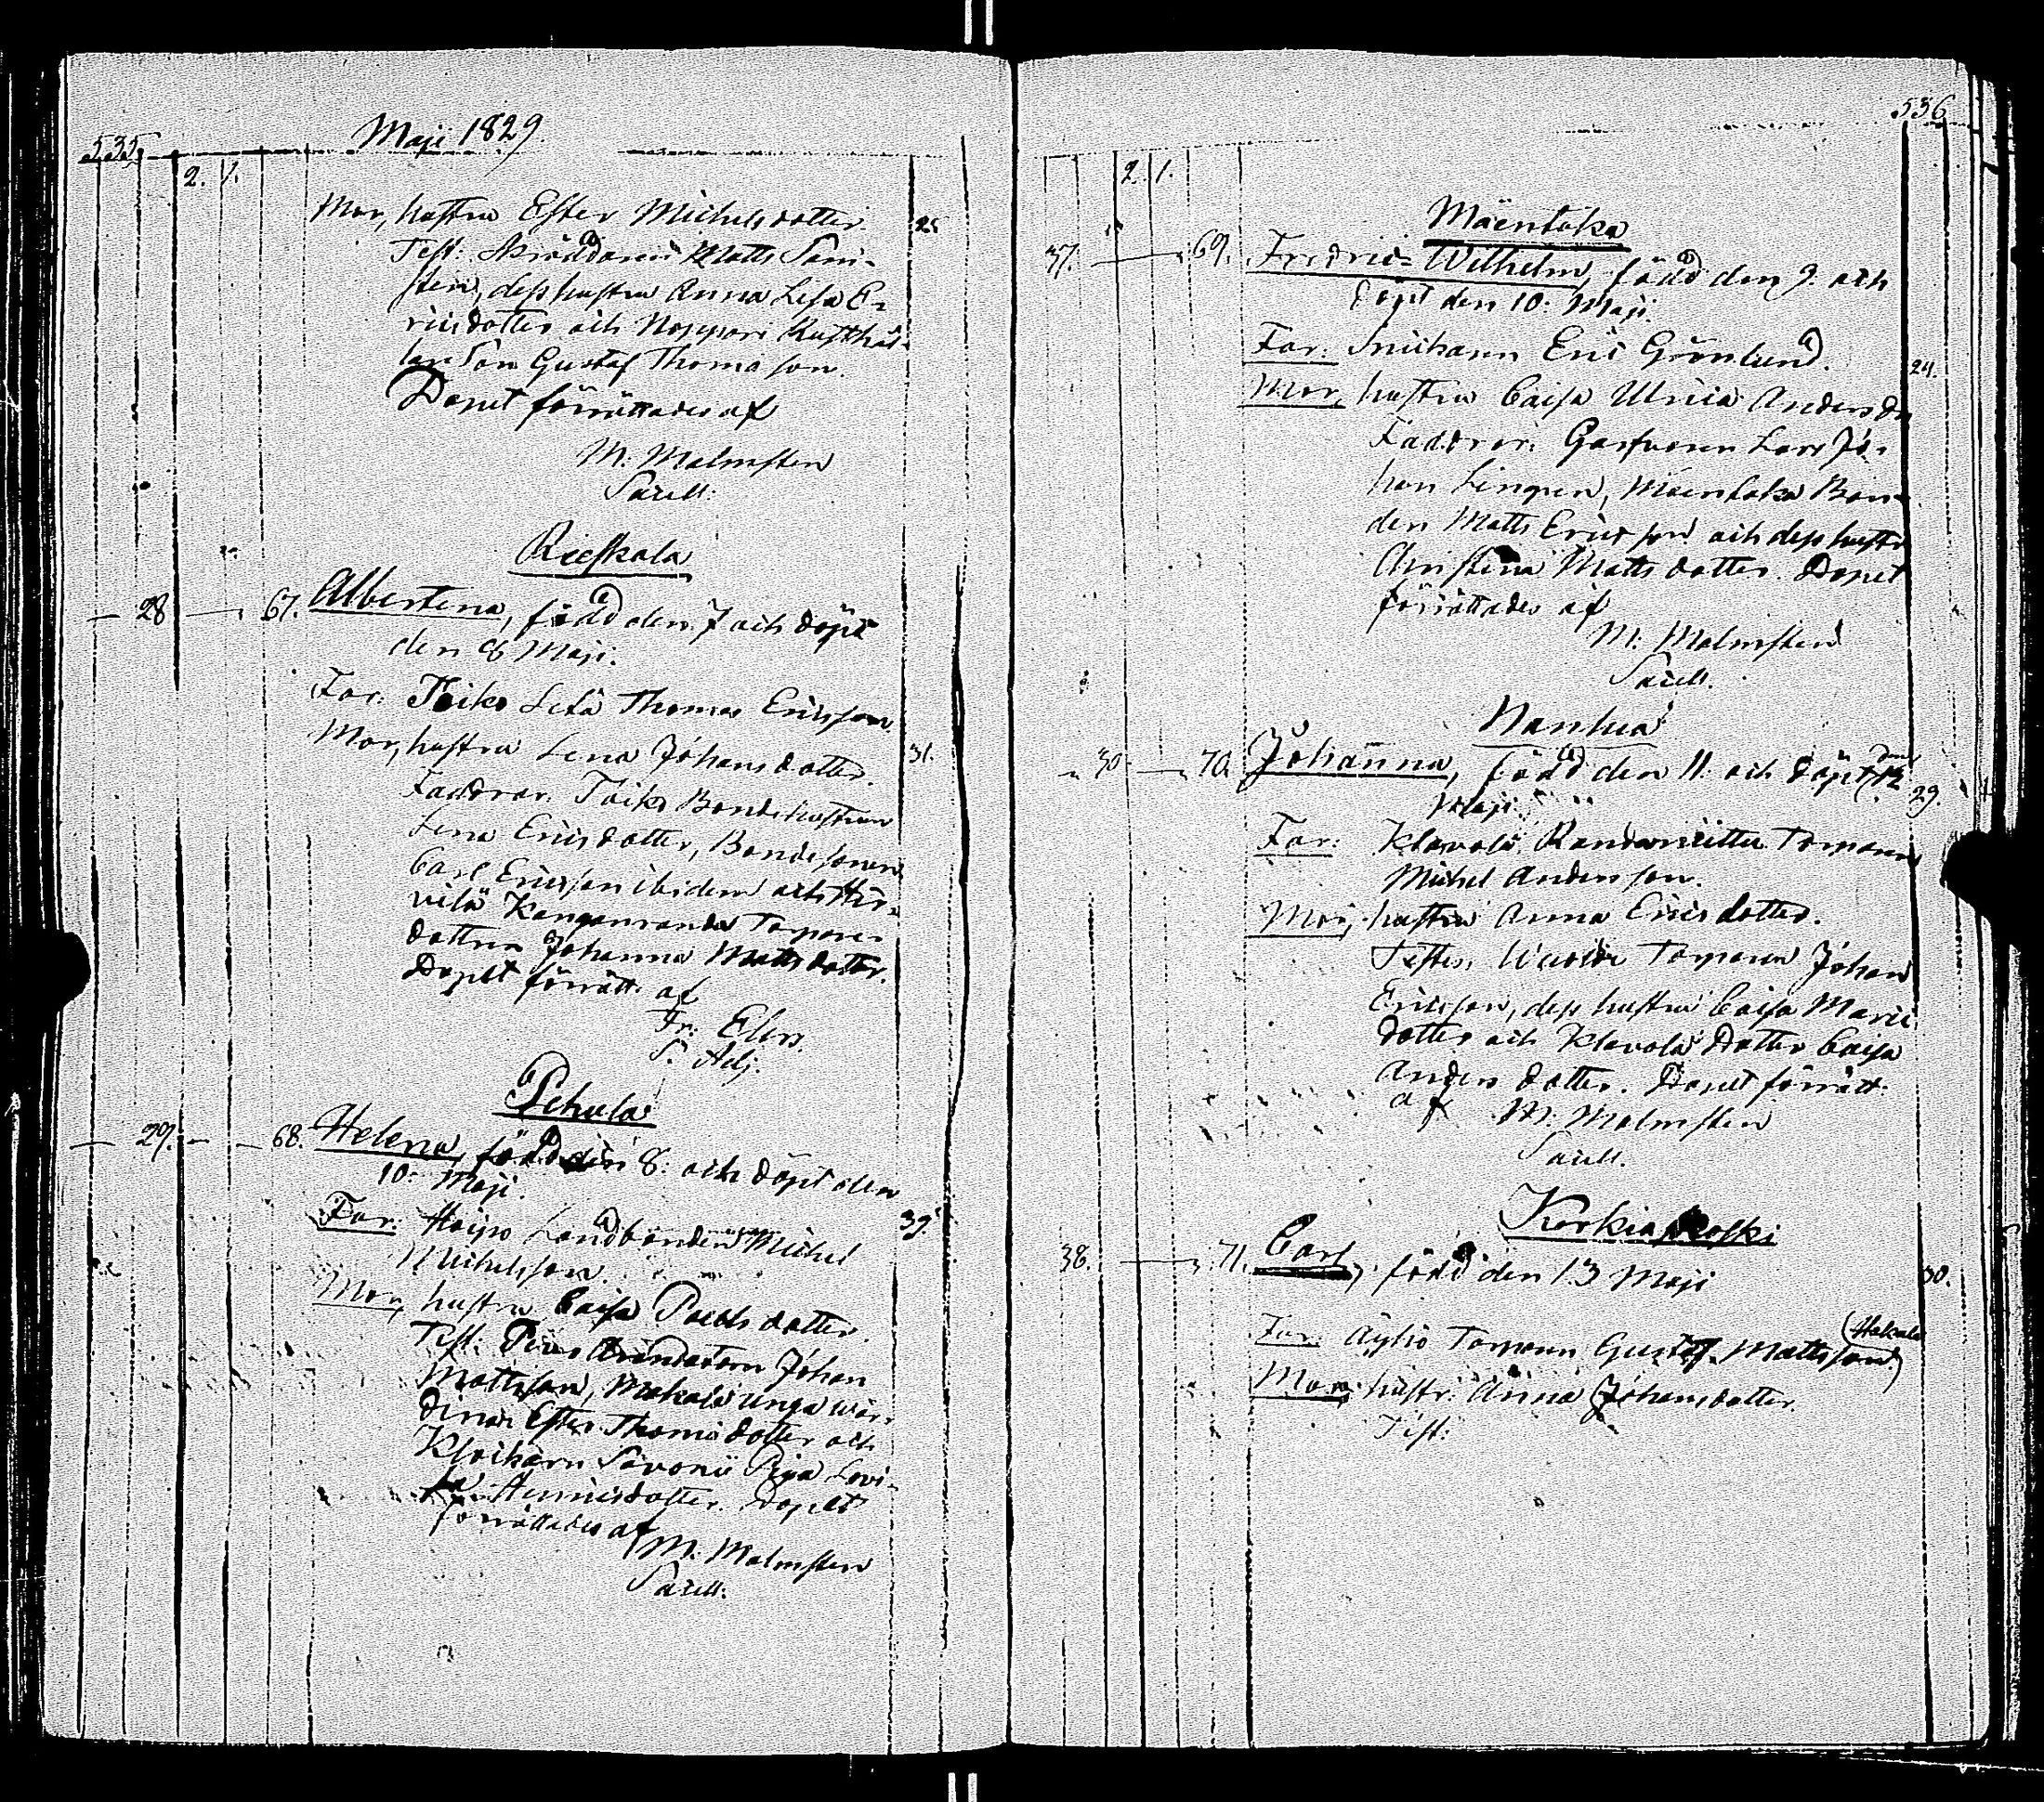 535.
Maji 1829.
2. 1.
Mor, hustru Ester Michelsdotter. 25
Test: Skräddaren Matts
sten, dess hustru Anna Lisa E-
ricsdotter och Noppari Rusthål-
lare Son Gustaf Thomasson.
Dopet förrättades af
M: Malmsten
Sacell:
Rieskala
28 67. Albertina, född den 7 och döpt
den 8 Maji.
Far: Seta Thomas Ericsson
Mor, hustru Lena Johansdotter. 31.
Faddrar: Bondehustrun
Lena Ericsdotter, Bondesonen
Carl Ericsson ibidem och Hir-
vilä Kanganranda Torpare-
dottren Johanna Mattsdotter.
Dopet förrätt: af
Fr: Elers.
S. Adj.
Pehula
29. 68. Helena, född den 8: och döpt den
10: Maji.
Far: Haipo Landbonden Michel 39.
Michelsson.
Mor, hustru Caisa Pauls dotter.
Test: Johan
Mattsson, Makala unga wär-
dinan Ester Thomsdotter och
Klockarn Savonii Piga Lovi-
sa Henricsdotter. Dopet
förrättades af
M: Malmsten
Sacell:
536
2. 1.
Mäentaka
37. 69. Fredric Wilhelm, född den 9. och
döpt den 10: Maji.
Far: Snickaren Eric Grönlund. 24.
Mor, hustru Caisa Ulrica Anders dr
Faddrar: Garfvaren Lars Jo-
han Lingren, Mäentaka Bon-
den Matts Ericsson och dess hustru
Christina Mattsdotter. Dopet
förrättades af
M: Malmsten
Sacell.
Nanhia
30 70. Johanna, född den 11: och döpt den 12 29.
Maji.
Far: Klavola Torparen
Michel Andersson.
Mor, hustru Anna Ericsdotter.
Testes: Torparen Johan
Ericsson, dess hustru Caisa
dotter och Klavola Dotter Caisa
Anders dotter. Dopet förrätt:
af M: Malmsten
Sacell.
Korkiakoski
38. 71. Carl, född den 13 Maji 30.
Far: Äyhö Torparen Gustaf Mattsson (Hakala)
Mor: hustr: Anna Johansdotter.
Test: